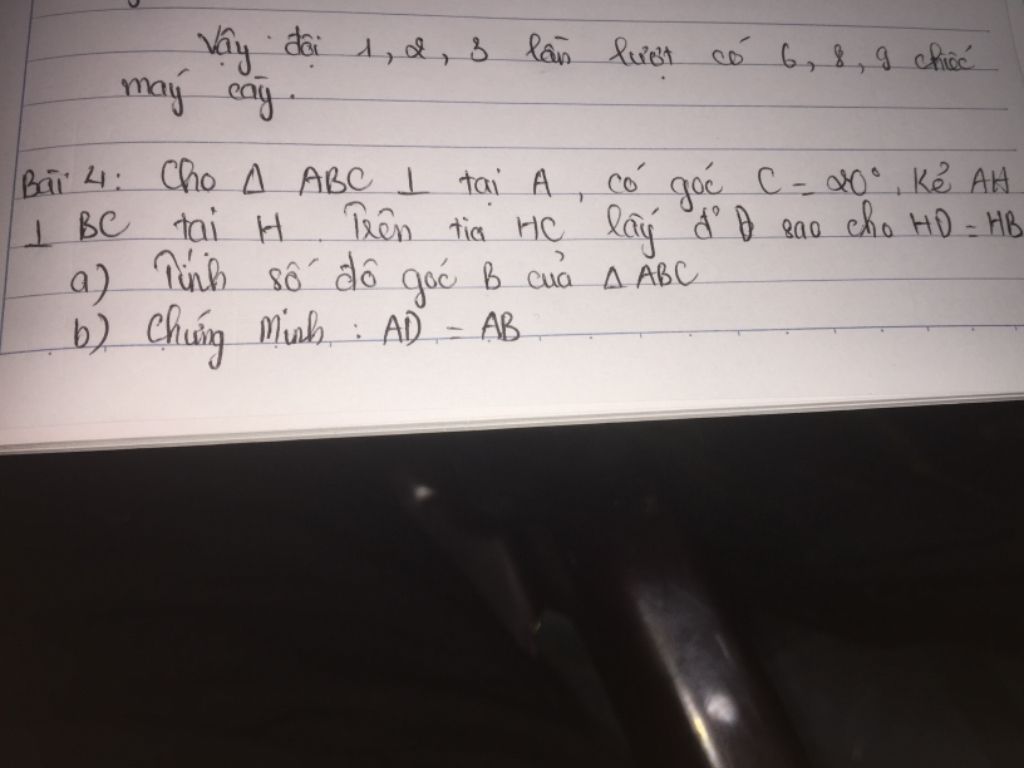 Vậy đội 1, 2, 3 lần lượt có 6, 8, 9 chiếc
máy cày.
Bài 4: Cho Δ ABC ⊥ tại A, có góc C = 20°. Kẻ AH
⊥ BC tại H. Trên tia HC lấy đ' D sao cho HD = HB
a) Tính số đô góc B của Δ ABC
b) Chứng minh : AD = AB